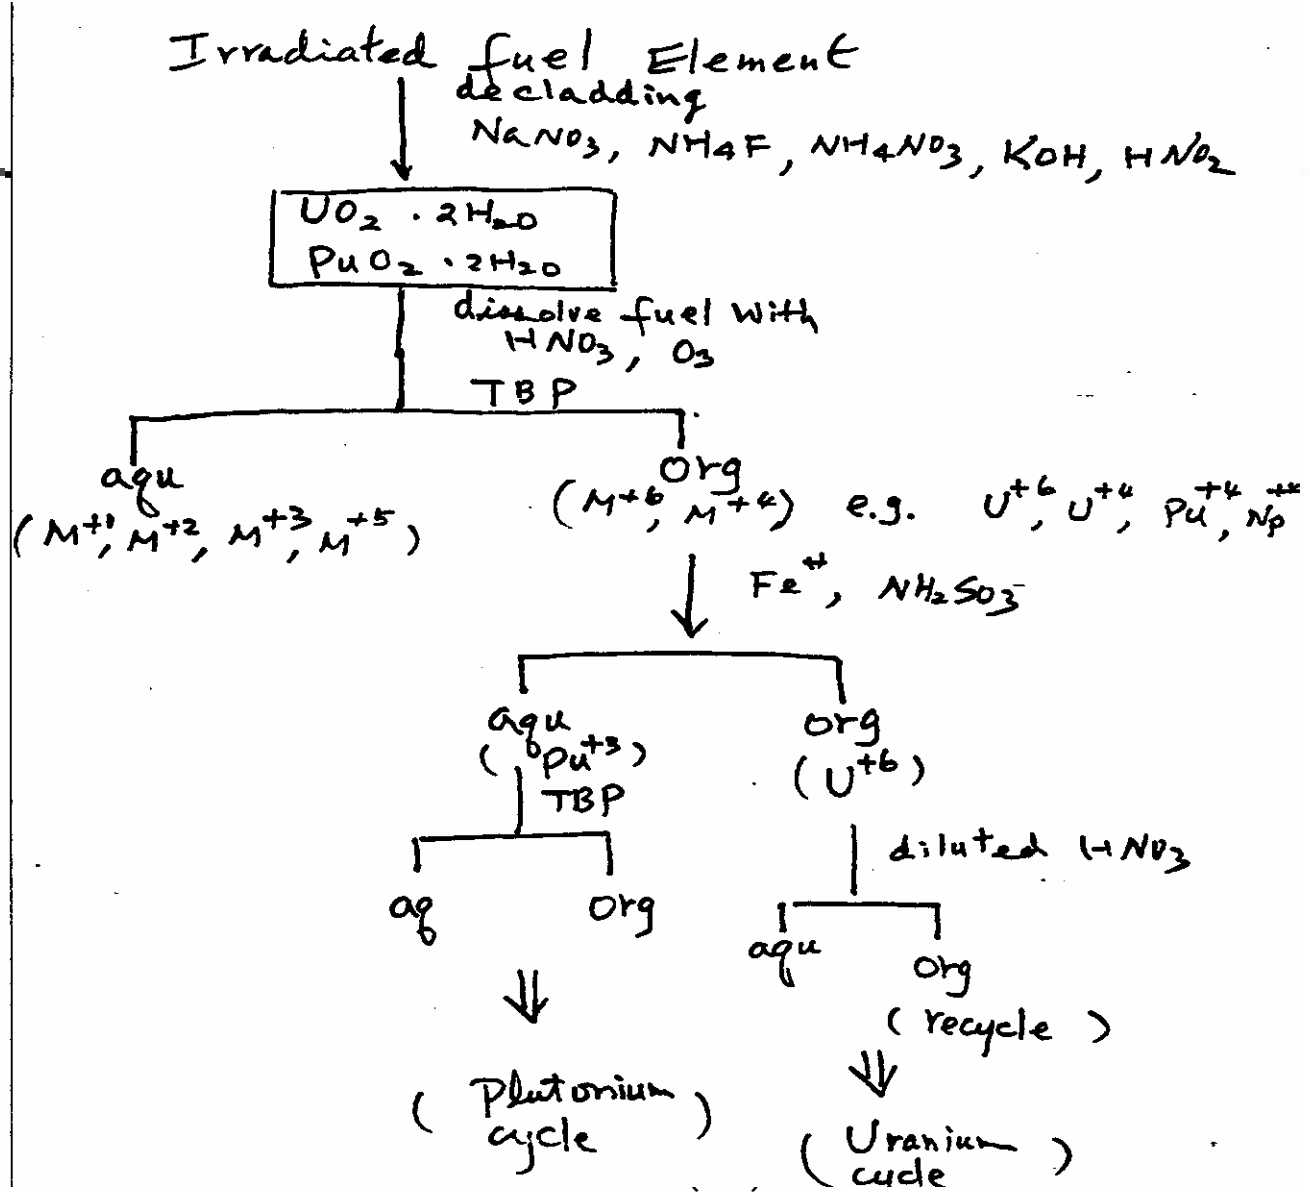 Irradiated fuel Element
decladding
NaNO3, NH4F, NH4NO3, KOH, HNO2
UO2 · 2H2O
PuO2 · 2H2O
dissolve fuel with
HNO3, O3
TBP
aqu
org
(M+1, M+2, M+3, M+5)
(M+6, M+4) e.g. U+6, U+4, Pu+4, Np+4
Fe++, NH2SO3-
aqu
org
(Pu+3)
(U+6)
TBP
diluted HNO3
aq
org
aqu
org
(recycle)
(Plutonium
cycle)
(Uranium
cycle)